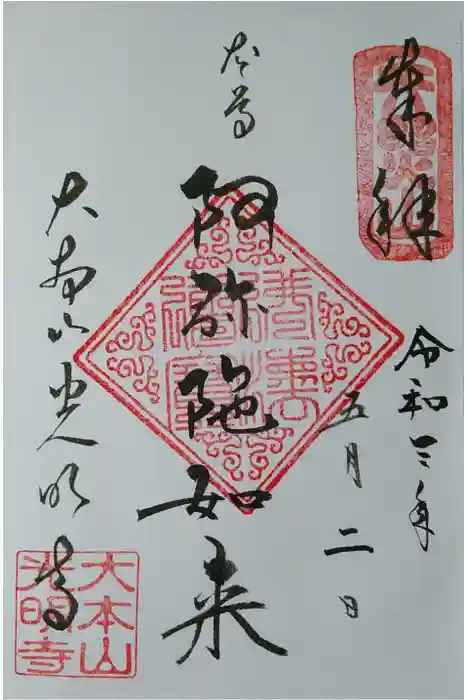 奉拝
令和三年
五月二日
本尊
阿弥陀如来
大本山光明寺
大本山
光明寺